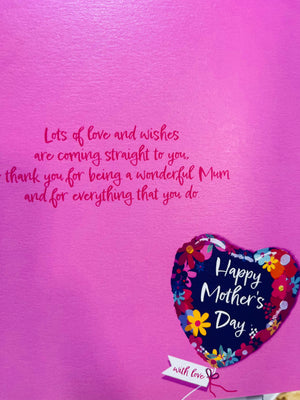 Lots of love and wishes
are coming straight to you,
thank you for being a wonderful Mum
and for everything that you do
Happy
Mother's
Day
with love